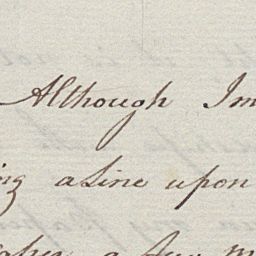 Although Im
ing a Line upon
a few m